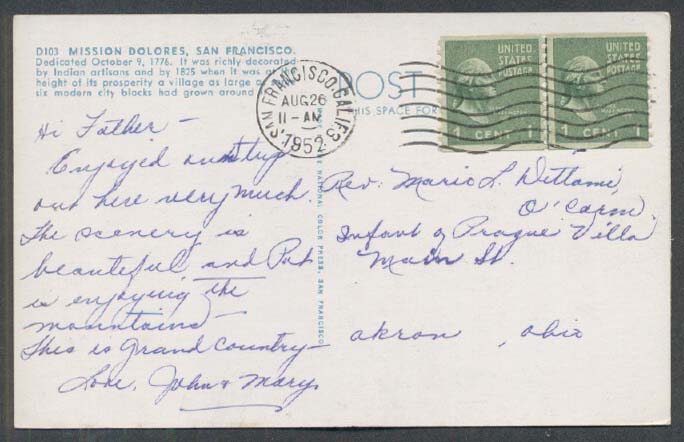 D103 MISSION DOLORES, SAN FRANCISCO.
Dedicated October 9, 1776. It was richly decorated
by Indian artisans and by 1825 when it was at the
height of its prosperity a village as large as
six modern city blocks had grown around
POST
THIS SPACE FOR
SAN FRANCISCO, CALIF.
AUG 26
11-AM
1952
UNITED
STATES
POSTAGE
1 CENT 1
UNITED
STATES
POSTAGE
1 CENT 1
NATIONAL COLOR PRESS, SAN FRANCISCO
Hi Father -
Enjoyed our trip
out here very much.
The scenery is
beautiful, and Pat
is enjoying the
mountains -
This is Grand Country -
Love, John & Mary
Rev. Mario L. Dittami,
O'Carm.
Infant of Prague Villa
Main St.
Akron, Ohio